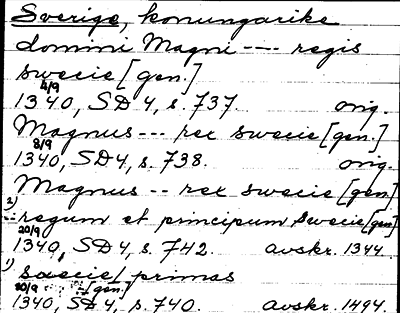 Sverige, konungarike
domini Magni --- regis
swecie [gen.]
4/9
1340, SD 4, s. 737. orig.
Magnus --- rex swecie [gen.]
8/9
1340, SD 4, s. 738. orig.
Magnus -- rex swecie [gen]
2) -- regum et principum Swecie [gen]
20/9
1340, SD 4, s. 742. avskr. 1344.
1) swecie / primas
20/9 [gen]
1340, SD 4, s. 740. avskr. 1494.